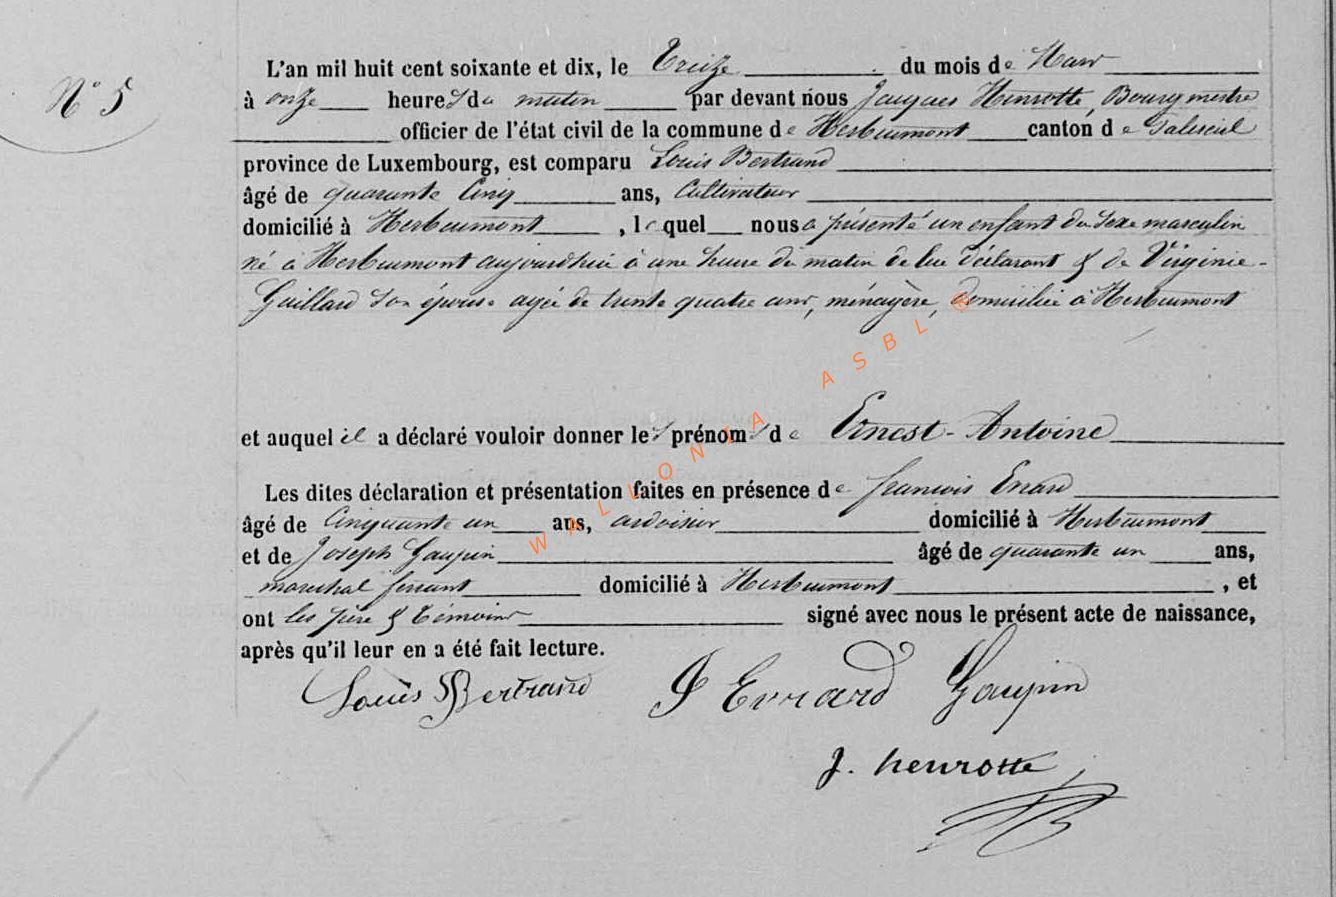 N° 5
L'an mil huit cent soixante et dix, le Treize du mois de Mars
à onze heures du matin par devant nous Jacques Henrotte, Bourgmestre
officier de l'état civil de la commune de Herbeumont canton de Paliseul
province de Luxembourg, est comparu Louis Bertrand
âgé de quarante Cinq ans, Cultivateur
domicilié à Herbeumont, lequel nous a présenté un enfant du sexe masculin
né à Herbeumont aujourd'hui à une heure du matin de lui déclarant & de Virginie-
Guillard son épouse agée de trente quatre ans, ménagère, domiciliée à Herbeumont
et auquel il a déclaré vouloir donner les prénoms de Ernest-Antoine
Les dites déclaration et présentation faites en présence de françois Evrard
âgé de Cinquante un ans, ardoisier domicilié à Herbeumont
et de Joseph Goupin âgé de quarante un ans,
marechal ferrant domicilié à Herbeumont, et
ont les père & témoins signé avec nous le présent acte de naissance,
après qu'il leur en a été fait lecture.
Louis Bertrand F Evrard Goupin
J. henrotte
WALLONIA ASBL ©